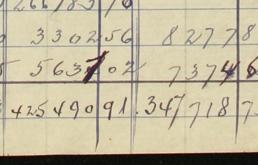 266783 76
330256 82778
563702 73746
42549091 .347718 7